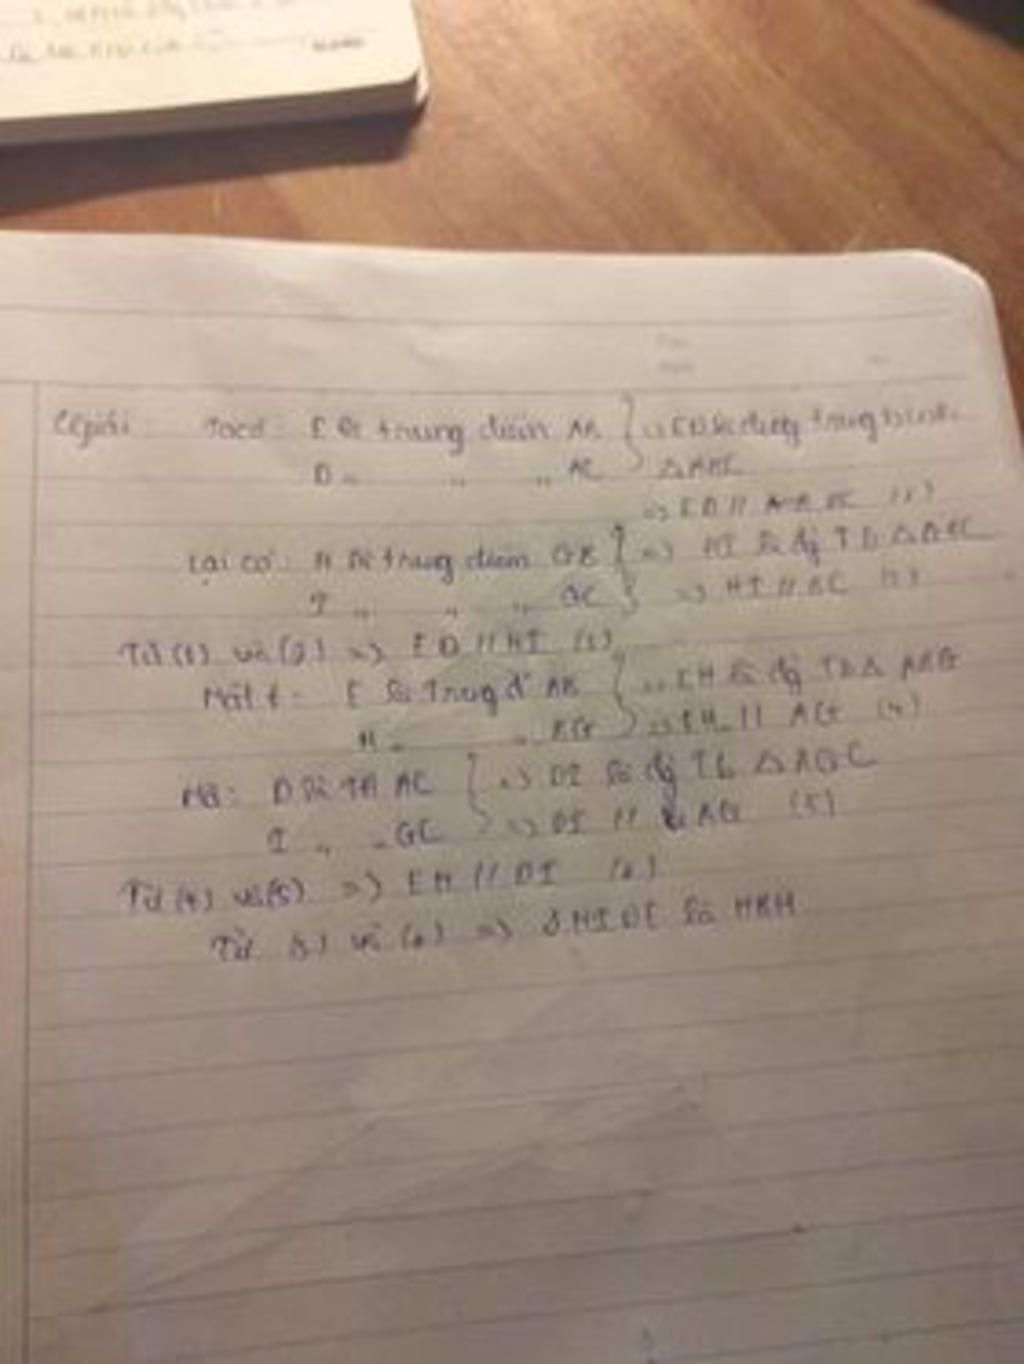 Giải: Ta có: E là trung điểm AB } => ED là đường trung bình
D " " " AC } △ABC
=> ED // BC (1)
Lại có: H là trung điểm GB } => HI là đg TB △BGC
I " " " GC } => HI // BC (2)
Từ (1) và (2) => ED // HI (3)
Mặt ≠: E là trug đ' AB } => EH là đg TB △ ABG
H " " BG } => EH // AG (4)
Mà: D là TĐ AC } => DI là đg TB △AGC
I " " GC } => DI // AG (5)
Từ (4) và (5) => EH // DI (6)
Từ (3) và (6) => HIDE là HBH